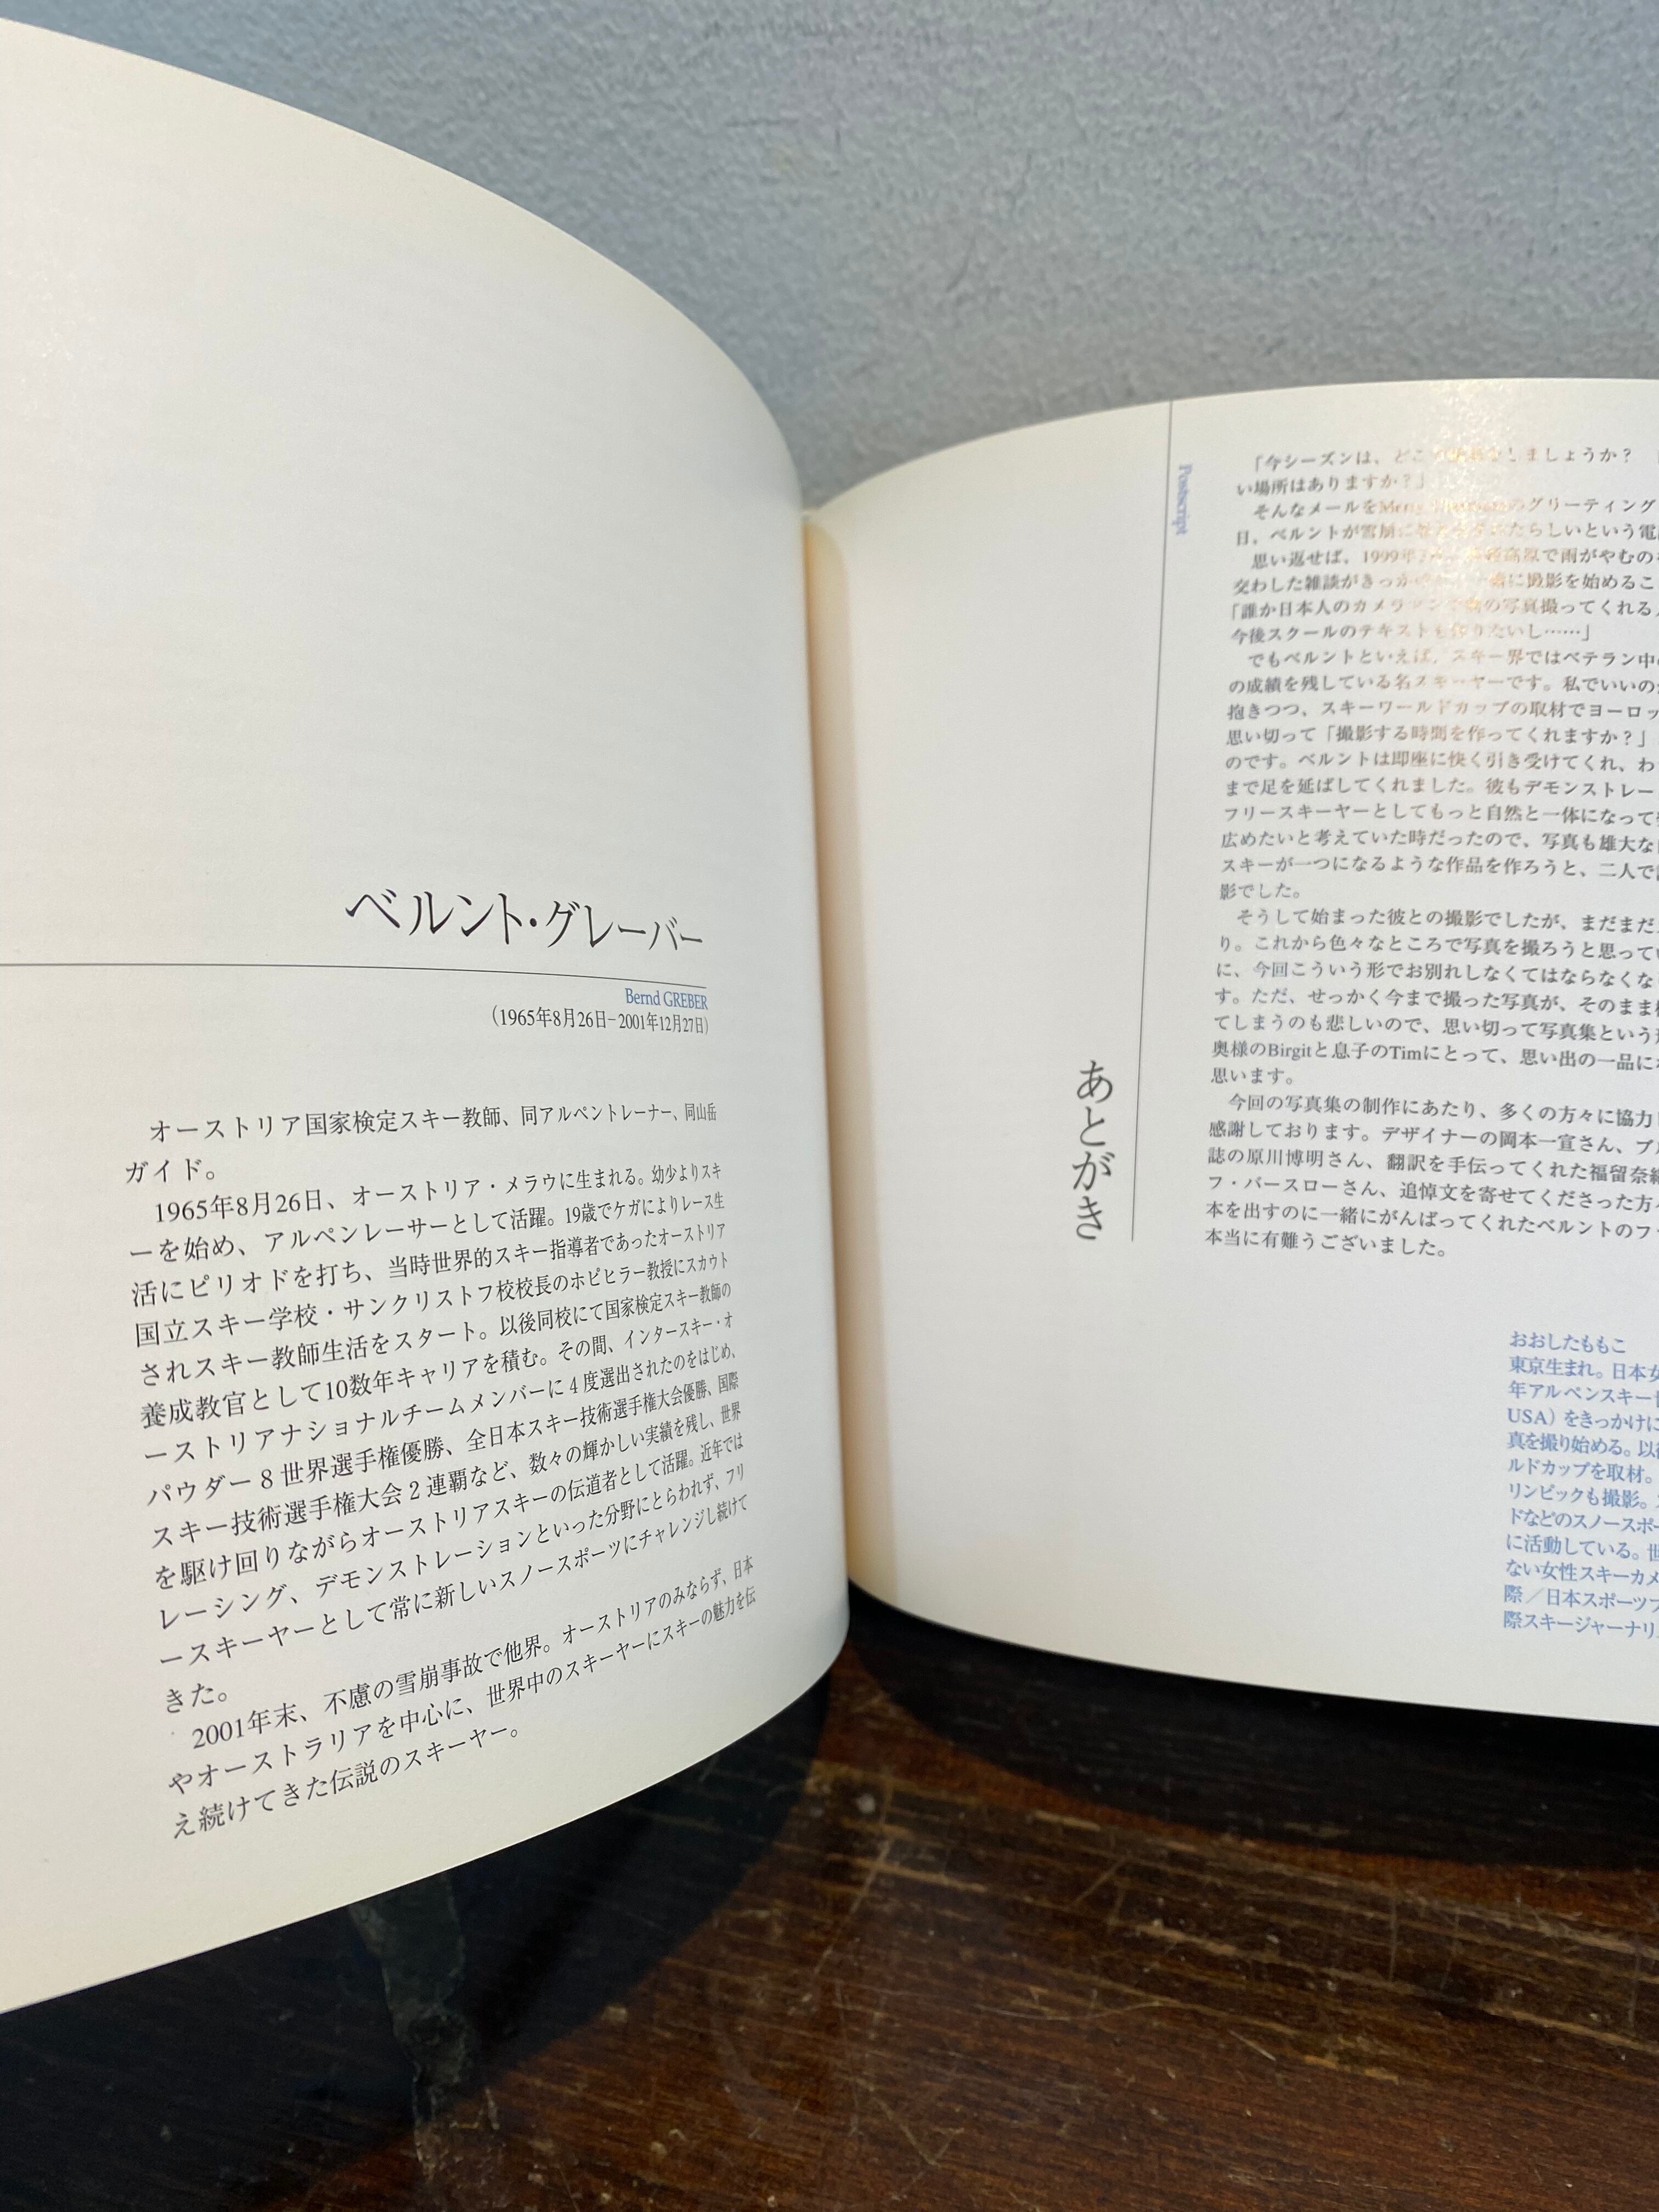 ベルント・グレーバー
Bernd GREBER
（1965年8月26日−2001年12月27日）
オーストリア国家検定スキー教師、同アルペントレーナー、同山岳
ガイド。
1965年8月26日、オーストリア・メラウに生まれる。幼少よりスキ
ーを始め、アルペンレーサーとして活躍。19歳でケガによりレース生
活にピリオドを打ち、当時世界的スキー指導者であったオーストリア
国立スキー学校・サンクリストフ校校長のホピヒラー教授にスカウト
されスキー教師生活をスタート。以後同校にて国家検定スキー教師の
養成教官として10数年キャリアを積む。その間、インタースキー・オ
ーストリアナショナルチームメンバーに4度選出されたのをはじめ、
パウダー8世界選手権優勝、全日本スキー技術選手権大会優勝、国際
スキー技術選手権大会2連覇など、数々の輝かしい実績を残し、世界
を駆け回りながらオーストリアスキーの伝道者として活躍。近年では
レーシング、デモンストレーションといった分野にとらわれず、フリ
ースキーヤーとして常に新しいスノースポーツにチャレンジし続けて
きた。
2001年末、不慮の雪崩事故で他界。オーストリアのみならず、日本
やオーストラリアを中心に、世界中のスキーヤーにスキーの魅力を伝
え続けてきた伝説のスキーヤー。
あとがき
Postscript
「今シーズンは、どこ しましょうか？
い場所はありますか？」
そんなメールを のグリーティング
日、ベルントが雪崩に たらしいという電
思い返せば、1999年 高原で雨がやむの
交わした雑談がきっか 緒に撮影を始めるこ
「誰か日本人のカメラマンで の写真撮ってくれる
今後スクールのテキストも作りたいし……」
でもベルントといえば、スキー界ではベテラン中
の成績を残している名スキーヤーです。私でいいの
抱きつつ、スキーワールドカップの取材でヨーロッ
思い切って「撮影する時間を作ってくれますか？」
のです。ベルントは即座に快く引き受けてくれ、わ
まで足を延ばしてくれました。彼もデモンストレー
フリースキーヤーとしてもっと自然と一体になって
広めたいと考えていた時だったので、写真も雄大な
スキーが一つになるような作品を作ろうと、二人で
影でした。
そうして始まった彼との撮影でしたが、まだまだ
り。これから色々なところで写真を撮ろうと思って
に、今回こういう形でお別れしなくてはならなくな
す。ただ、せっかく今まで撮った写真が、そのまま
てしまうのも悲しいので、思い切って写真集という
奥様のBirgitと息子のTimにとって、思い出の一品に
思います。
今回の写真集の制作にあたり、多くの方々に協力
感謝しております。デザイナーの岡本一宣さん、ブ
誌の原川博明さん、翻訳を手伝ってくれた福留奈
フ・バースローさん、追悼文を寄せてくださった方
本を出すのに一緒にがんばってくれたベルントのフ
本当に有難うございました。
おおしたももこ
東京生まれ。日本女
年アルペンスキー
USA）をきっかけに
真を撮り始める。以
ルドカップを取材。
リンピックも撮影。
ドなどのスノースポー
に活動している。
ない女性スキーカメ
際／日本スポーツプ
際スキージャーナリ